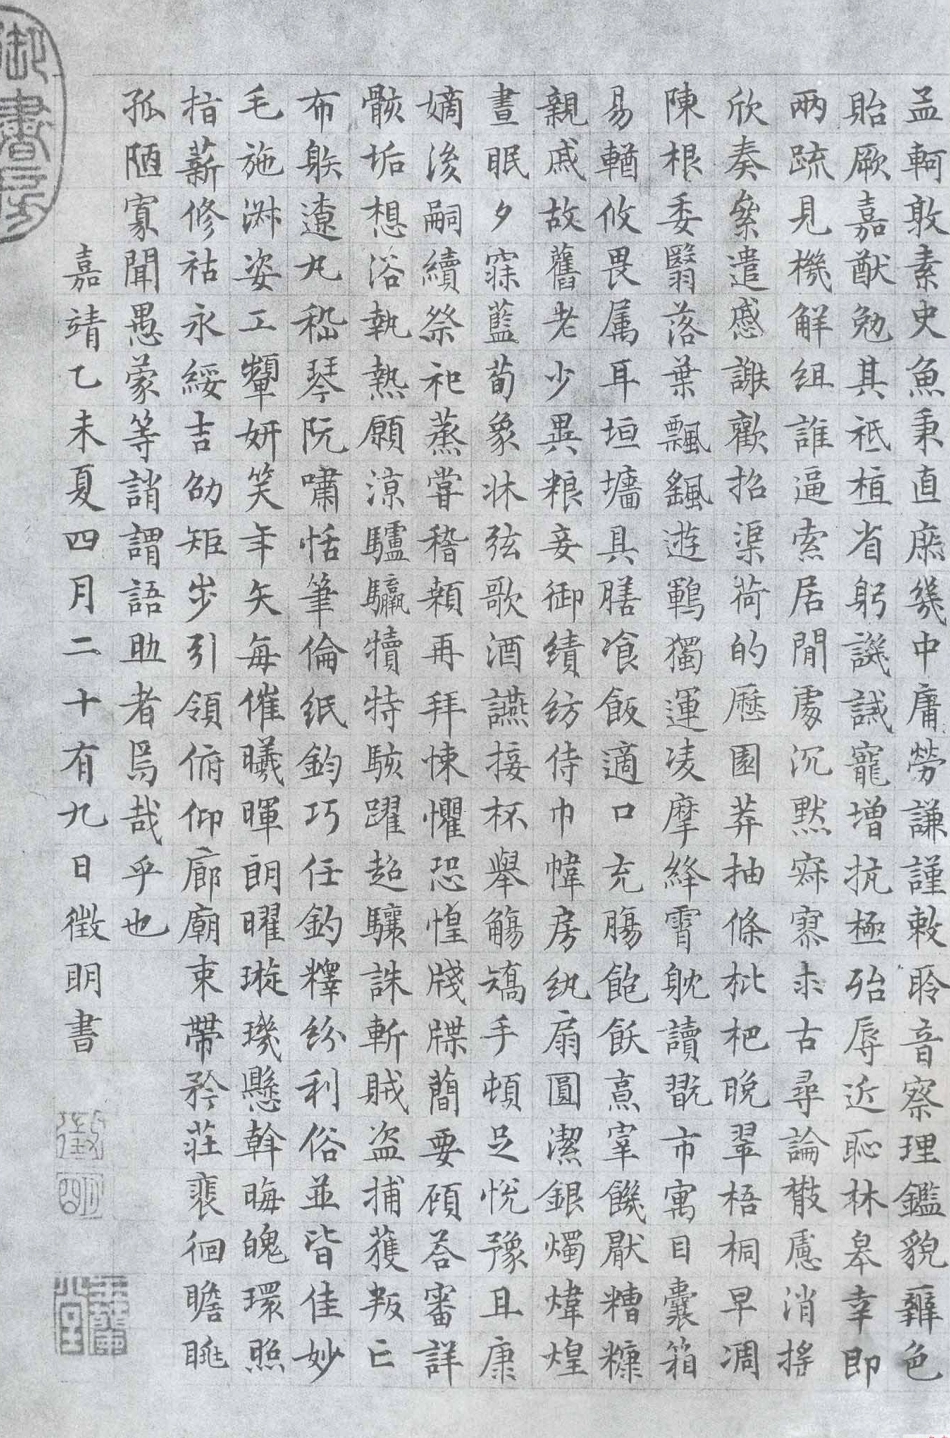 孟軻敦素史魚秉直庶幾中庸勞謙謹敕聆音察理鑑貌辯色
貽厥嘉猷勉其祗植省躬譏誡寵增抗極殆辱近恥林皋幸即
兩疏見機解組誰逼索居閒處沉默寂寥求古尋論散慮消搖
欣奏絫遣慼謝歡招渠荷的歷園莽抽條枇杷晚翠梧桐早凋
陳根委翳落葉飄颻遊鵾獨運凌摩絳霄耽讀翫市寓目囊箱
易輶攸畏属耳垣墻具膳飡飯適口充腸飽飫烹宰饑厭糟糠
親戚故舊老少異粮妾御績紡侍巾幃房紈扇圓潔銀燭煒煌
晝眠夕寐藍荀象牀弦歌酒讌接杯舉觴矯手頓足悅豫且康
嫡後嗣續祭祀蒸嘗稽顙再拜悚懼恐惶牋牒簡要顧荅審詳
骸垢想浴執熱願涼驢驘犢特駭躍超驤誅斬賊盗捕獲叛亡
布躲遼丸嵇琴阮嘯恬筆倫纸鈞巧任釣釋紛利俗並皆佳妙
毛施淑姿工顰妍笑年矢每催曦暉朗曜璇璣懸斡晦魄環照
指薪修祜永綏吉劭矩步引領俯仰廊廟束帶矜莊裴徊瞻眺
孤陋寡聞愚蒙等誚謂語助者焉哉乎也
嘉靖乙未夏四月二十有九日徵明書
徵明
玉蘭堂
御書房